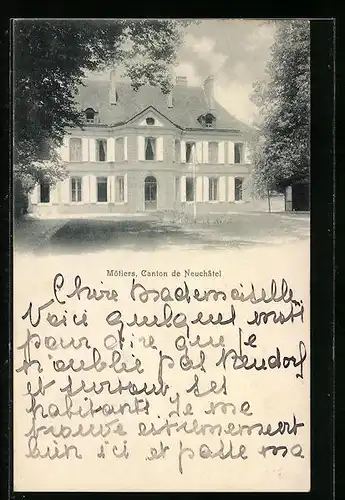 Môtiers, Canton de Neuchâtel
Chère Mademoiselle
Voici quelques mots
pour dire que je
n'oublie pas Neudorf
et surtout ses
habitants Je me
trouve extrêmement
bien ici et passe ma